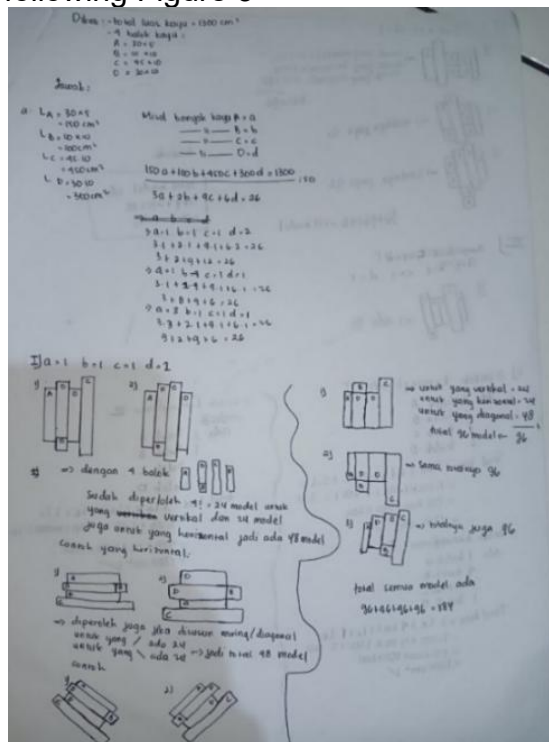 following Figure 3
Diket : - total luas kayu = 1300 cm²
- 4 balok kayu :
A = 30×5
B = 10×10
C = 45×10
D = 30×10
Jawab :
a. L A = 30×5
= 150 cm²
L B = 10×10
= 100 cm²
L C = 45 10
= 450 cm²
L D = 30 10
= 300 cm²
Misal banyak kayu A = a
B = b
C = c
D = d
150 a + 100 b + 450 c + 300 d = 1300
3a + 2b + 9c + 6d = 26
a=1 b=1 c=1 d=2
3.1 + 2.1 + 9.1 + 6.2 = 26
3 + 2 + 9 + 12 = 26
a=1 b=4 c=1 d=1
3 + 8 + 9 + 6 = 26
a=3 b=1 c=1 d=1
3.3 + 2.1 + 9.1 + 6.1 = 26
9 + 2 + 9 + 6 = 26
I) a=1 b=1 c=1 d=2
1)
2)
=> dengan 4 balok
Sudah diperoleh 4! = 24 model untuk
yang vertikal dan 24 model
juga untuk yang horizontal jadi ada 48 model
contoh yang horizontal
=> diperoleh juga jika disusun miring/diagonal
untuk yang / ada 24
untuk yang \ ada 24 -> jadi total 48 model
contoh
1)
2)
1)
=> untuk yang vertikal = 24
untuk yang horizontal = 24
untuk yang diagonal = 48
total 96 model = 96
2)
=> sama totalnya 96
3)
=> totalnya juga 96
total semua model ada
96+96+96+96 = 384